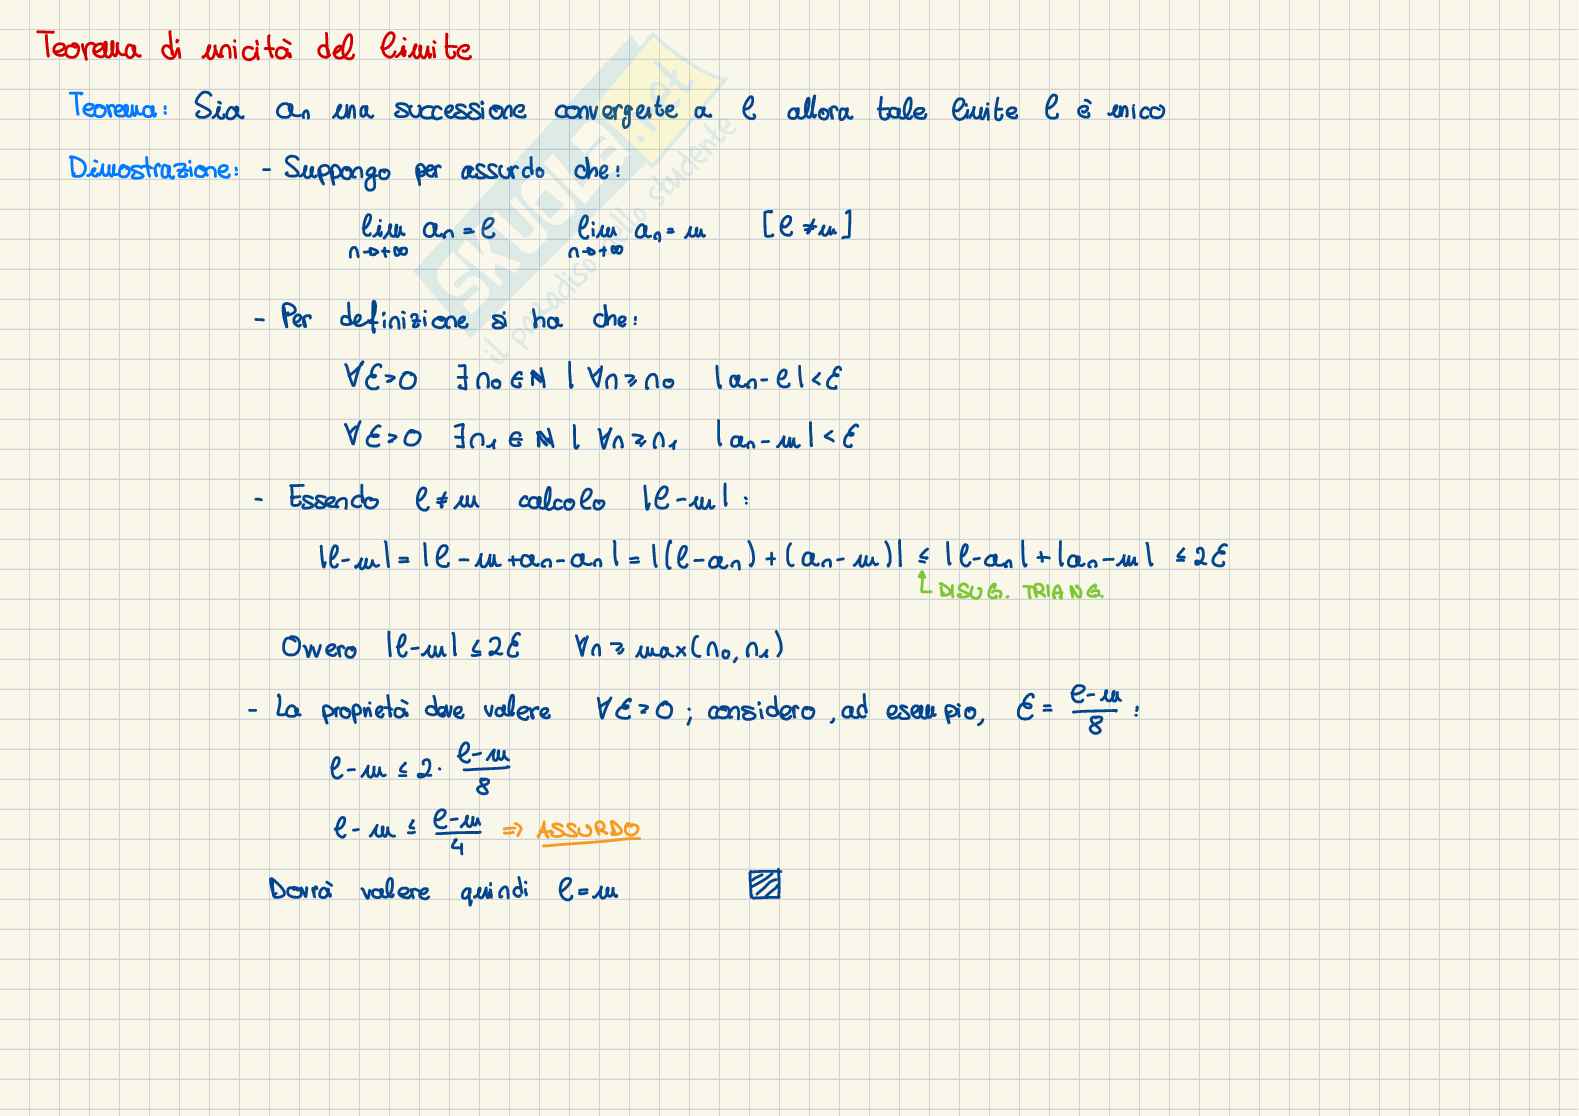 Teorema di unicità del limite
Teorema: Sia an una successione convergente a l allora tale limite l è unico
Dimostrazione: - Suppongo per assurdo che:
lim an = l lim an = m [l ≠ m]
n→+∞ n→+∞
- Per definizione si ha che:
∀ε>0 ∃n₀∈ℕ | ∀n≥n₀ |an-l|<ε
∀ε>0 ∃n₁∈ℕ | ∀n≥n₁ |an-m|<ε
- Essendo l≠m calcolo |l-m|:
|l-m| = |l-m+an-an| = |(l-an)+(an-m)| ≤ |l-an|+|an-m| ≤ 2ε
DISUG. TRIANG.
Ovvero |l-m| ≤ 2ε ∀n≥max(n₀,n₁)
- La proprietà deve valere ∀ε>0; considero, ad esempio, ε = (l-m)/8 :
l-m ≤ 2· (l-m)/8
l-m ≤ (l-m)/4 => ASSURDO
Dovrà valere quindi l=m
SKUOLA.net
il paradiso dello studente